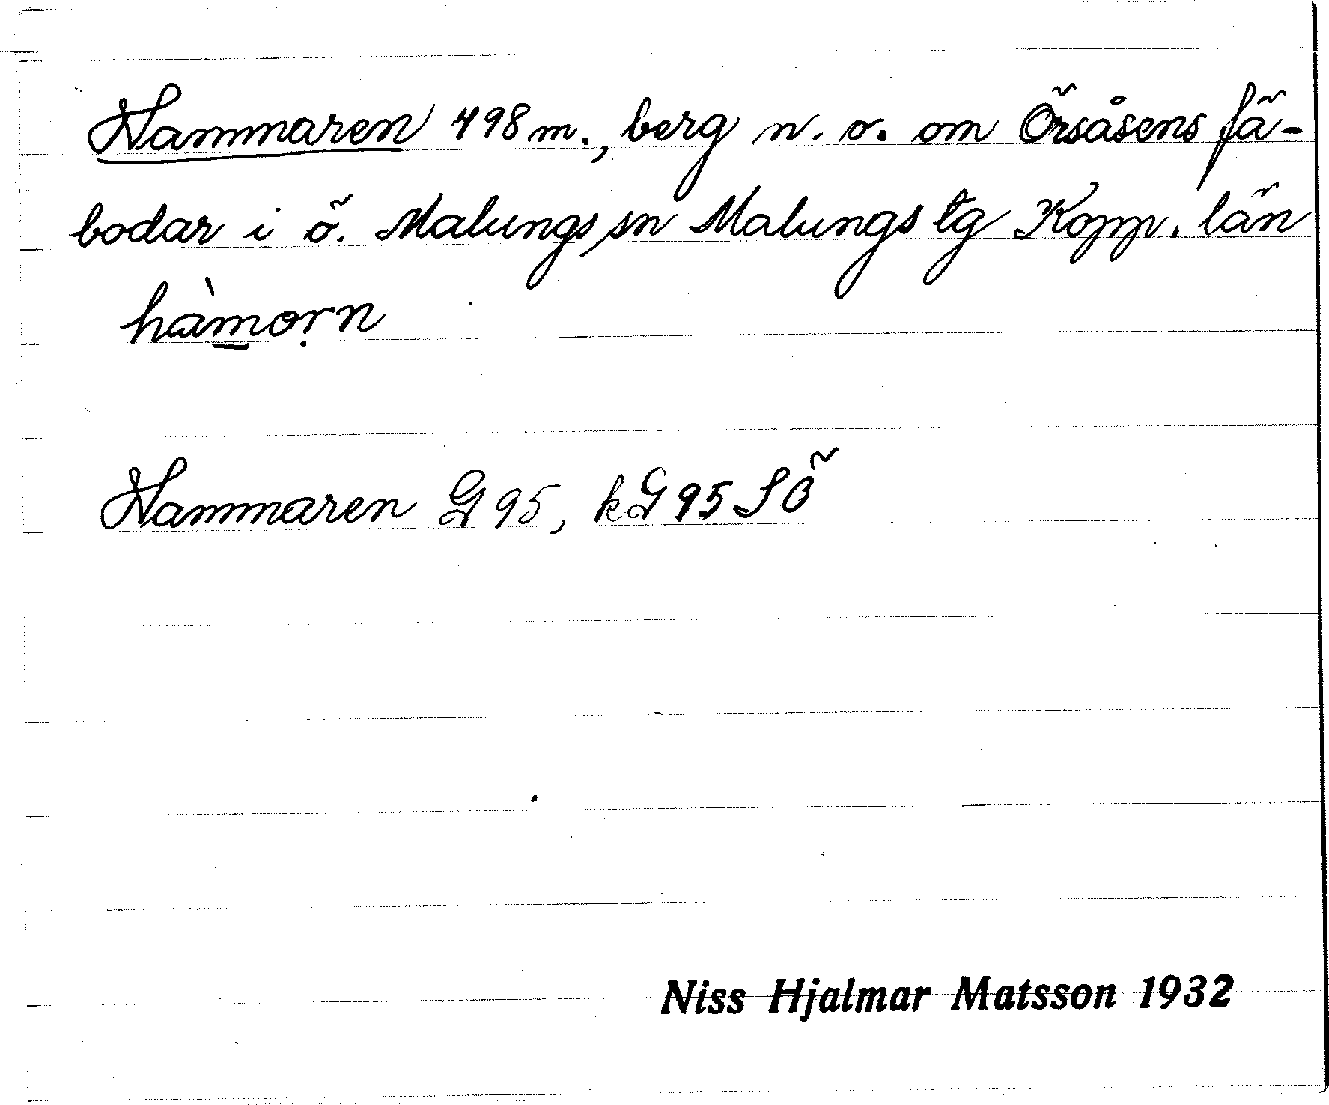 Hammaren 498 m., berg n. o. om Örsåsens fä-
bodar i ö. Malungs sn Malungs tg Kopp. län
hàm̲orṇ
Hammaren G 95, kG 95 SÖ
Niss Hjalmar Matsson 1932